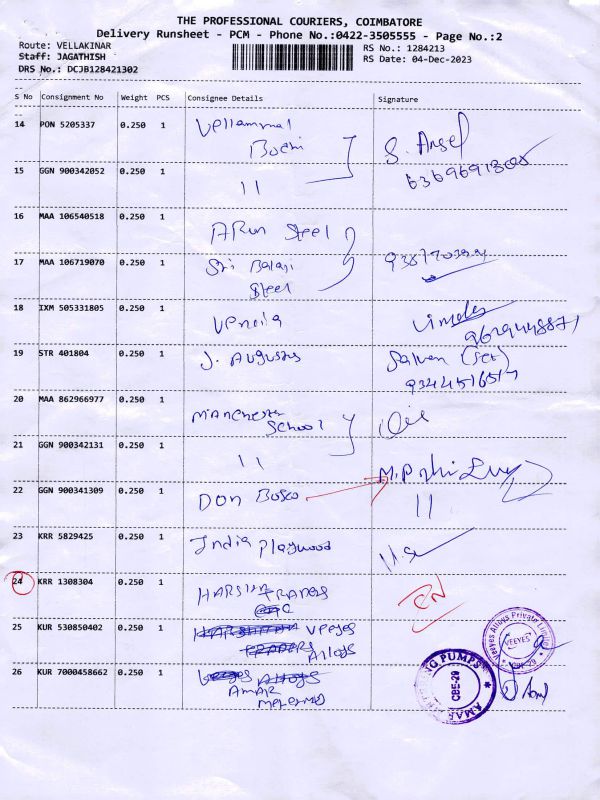 THE PROFESSIONAL COURIERS, COIMBATORE
Delivery Runsheet - PCM - Phone No.:0422-3505555 - Page No.:2
Route: VELLAKINAR RS No.: 1284213
Staff: JAGATHISH RS Date: 04-Dec-2023
DRS No.: DCJB128421302
S No Consignment No Weight PCS Consignee Details Signature
14 PON 5205337 0.250 1 Vellammal
15 GGN 900342052 0.250 1 11
16 MAA 106540518 0.250 1 ARun Steel
17 MAA 106719070 0.250 1 Sri Balaji
Steel
18 IXM 505331805 0.250 1
19 STR 401804 0.250 1 J. Augustus
20 MAA 862966977 0.250 1 Manchester
School
21 GGN 900342131 0.250 1 11
22 GGN 900341309 0.250 1 Don Bosco 11
23 KRR 5829425 0.250 1 India Playwood
24 KRR 1308304 0.250 1 HARSHA TRADERS
25 KUR 530850402 0.250 1 Veeyes
Alloys
26 KUR 7000458662 0.250 1
AMAR
Veeyes Alloys Private Limited
VEEYES
CBE-29
PUMPS
CBE-29
AMAR